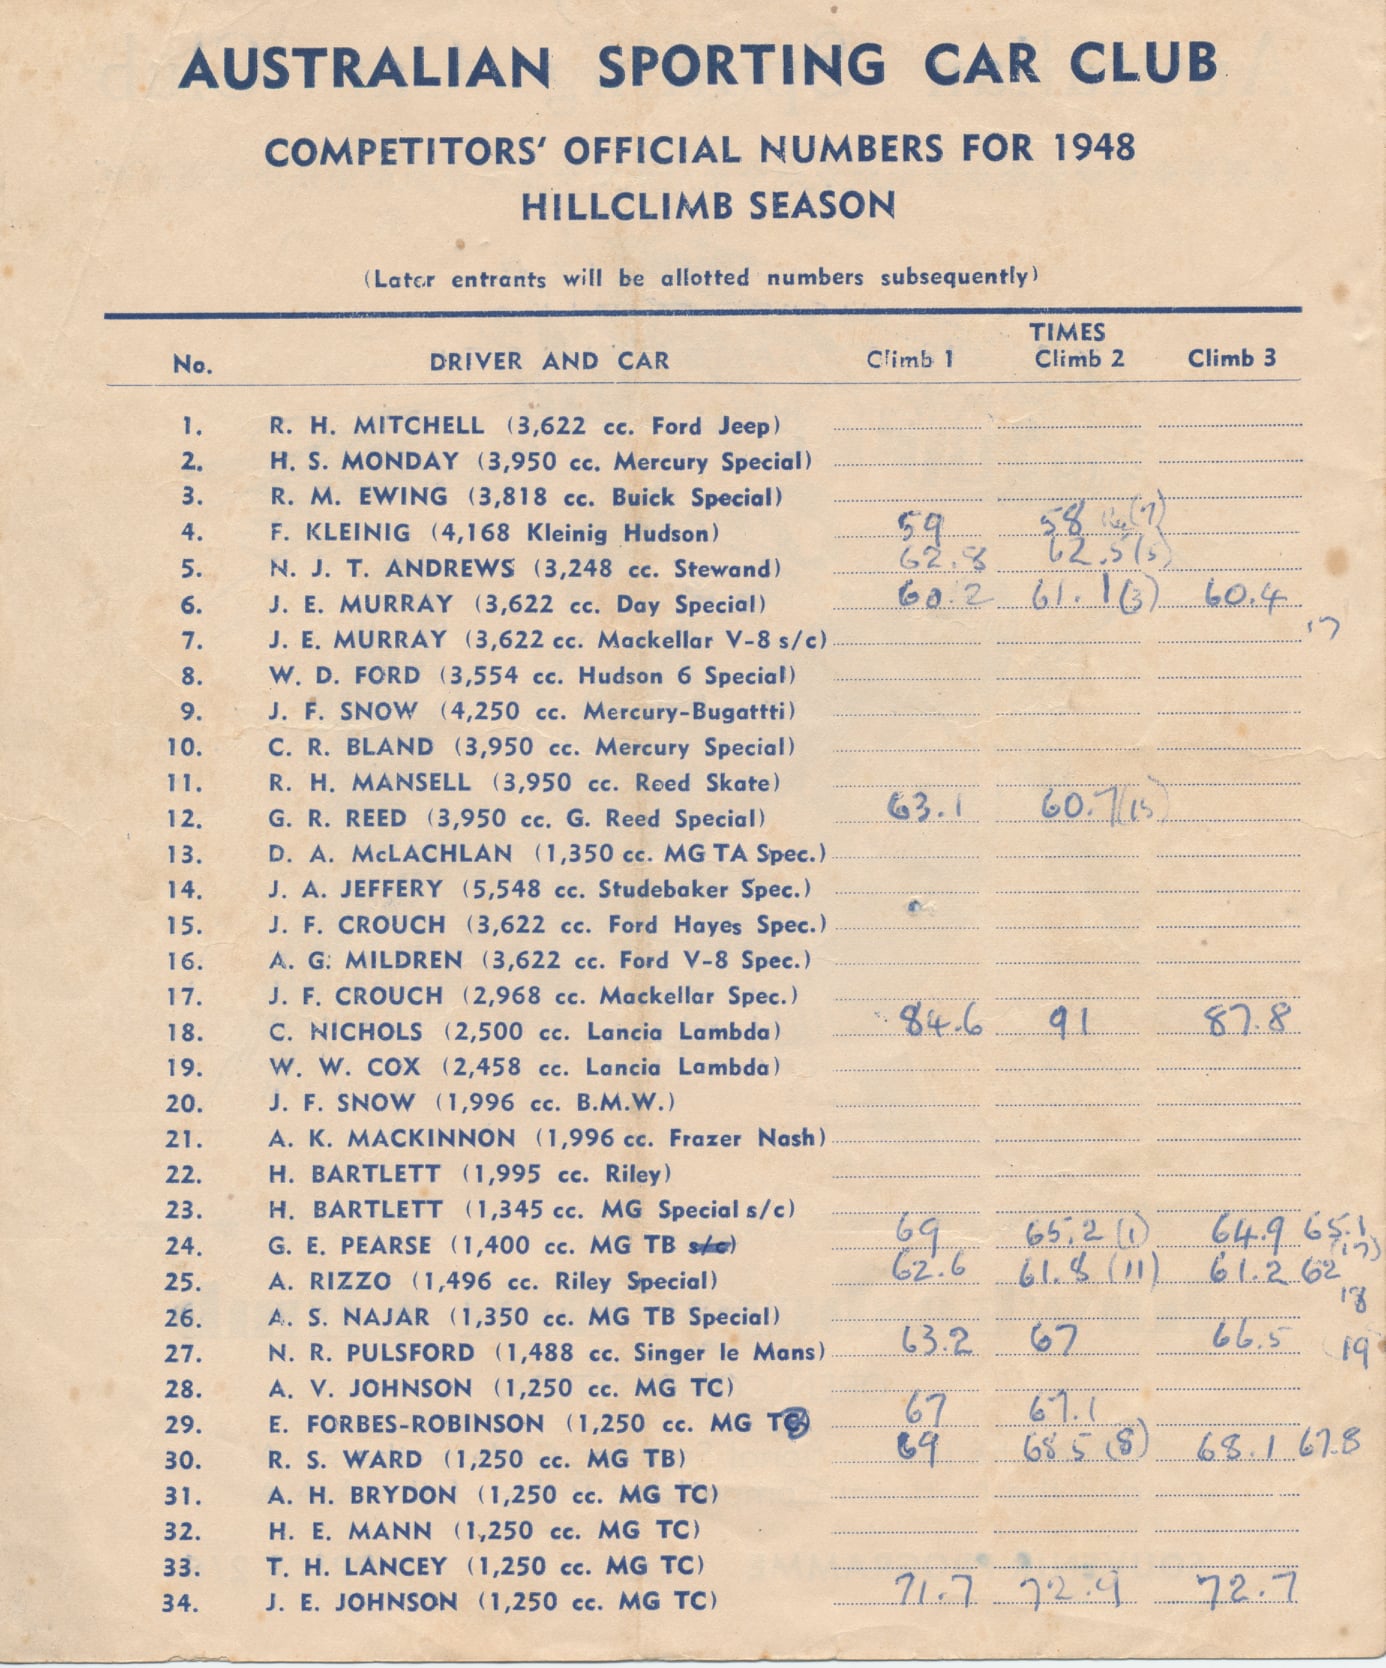 AUSTRALIAN SPORTING CAR CLUB
COMPETITORS' OFFICIAL NUMBERS FOR 1948
HILLCLIMB SEASON
(Later entrants will be allotted numbers subsequently)
TIMES
No. DRIVER AND CAR Climb 1 Climb 2 Climb 3
1. R. H. MITCHELL (3,622 cc. Ford Jeep)
2. H. S. MONDAY (3,950 cc. Mercury Special)
3. R. M. EWING (3,818 cc. Buick Special)
4. F. KLEINIG (4,168 Kleinig Hudson) 59 58 (7)
5. N. J. T. ANDREWS (3,248 cc. Stewand) 62.8 62.5 (5)
6. J. E. MURRAY (3,622 cc. Day Special) 60.2 61.1 (3) 60.4
7. J. E. MURRAY (3,622 cc. Mackellar V-8 s/c) 17
8. W. D. FORD (3,554 cc. Hudson 6 Special)
9. J. F. SNOW (4,250 cc. Mercury-Bugattti)
10. C. R. BLAND (3,950 cc. Mercury Special)
11. R. H. MANSELL (3,950 cc. Reed Skate)
12. G. R. REED (3,950 cc. G. Reed Special) 63.1 60.7 (15)
13. D. A. McLACHLAN (1,350 cc. MG TA Spec.)
14. J. A. JEFFERY (5,548 cc. Studebaker Spec.)
15. J. F. CROUCH (3,622 cc. Ford Hayes Spec.)
16. A. G. MILDREN (3,622 cc. Ford V-8 Spec.)
17. J. F. CROUCH (2,968 cc. Mackellar Spec.)
18. C. NICHOLS (2,500 cc. Lancia Lambda) 84.6 91 87.8
19. W. W. COX (2,458 cc. Lancia Lambda)
20. J. F. SNOW (1,996 cc. B.M.W.)
21. A. K. MACKINNON (1,996 cc. Frazer Nash)
22. H. BARTLETT (1,995 cc. Riley)
23. H. BARTLETT (1,345 cc. MG Special s/c)
24. G. E. PEARSE (1,400 cc. MG TB s/c) 69 65.2 (1) 64.9 65.1 (17)
25. A. RIZZO (1,496 cc. Riley Special) 62.6 61.8 (11) 61.2 62 18
26. A. S. NAJAR (1,350 cc. MG TB Special)
27. N. R. PULSFORD (1,488 cc. Singer le Mans) 63.2 67 66.5 19
28. A. V. JOHNSON (1,250 cc. MG TC)
29. E. FORBES-ROBINSON (1,250 cc. MG 67 67.1
30. R. S. WARD (1,250 cc. MG TB) 69 68.5 (8) 68.1 67.8
31. A. H. BRYDON (1,250 cc. MG TC)
32. H. E. MANN (1,250 cc. MG TC)
33. T. H. LANCEY (1,250 cc. MG TC)
34. J. E. JOHNSON (1,250 cc. MG TC) 71.7 72.9 72.7